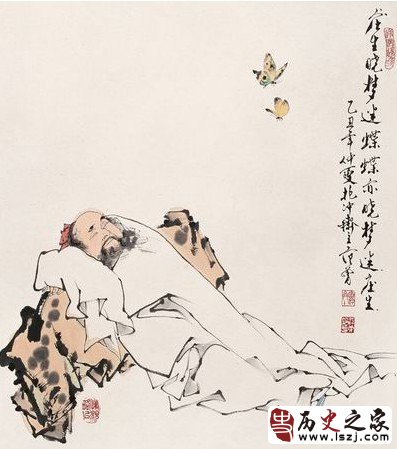 庄生晓梦迷蝶蝶亦晓梦迷庄生
乙丑年仲夏抱冲斋主范曾
史
历史之家
www.lszj.com